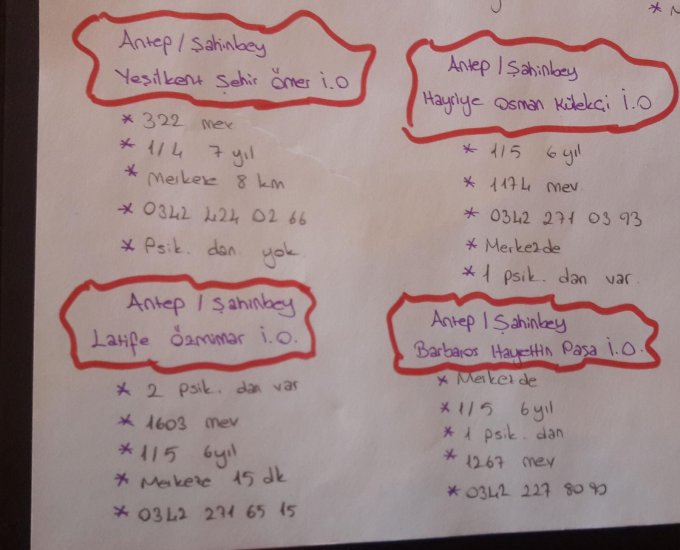 Antep / Şahinbey
Yeşilkent Şehir Ömer İ.O
* 322 mev
* 1/4 7 yıl
* Merkeze 8 km
* 0342 424 02 66
* Psik. dan. yok
Antep / Şahinbey
Hayriye Osman Külekçi İ.O
* 1/5 6 yıl
* 1174 mev.
* 0342 271 03 93
* Merkezde
* 1 psik. dan var.
Antep / Şahinbey
Latife Özmimar İ.O.
* 2 psik. dan var
* 1603 mev
* 1/5 6yıl
* Merkeze 15 dk
* 0342 271 65 15
Antep / Şahinbey
Barbaros Hayettin Paşa İ.O.
* Merkezde
* 1/5 6yıl
* 1 psik. dan
* 1267 mev
* 0342 227 80 90